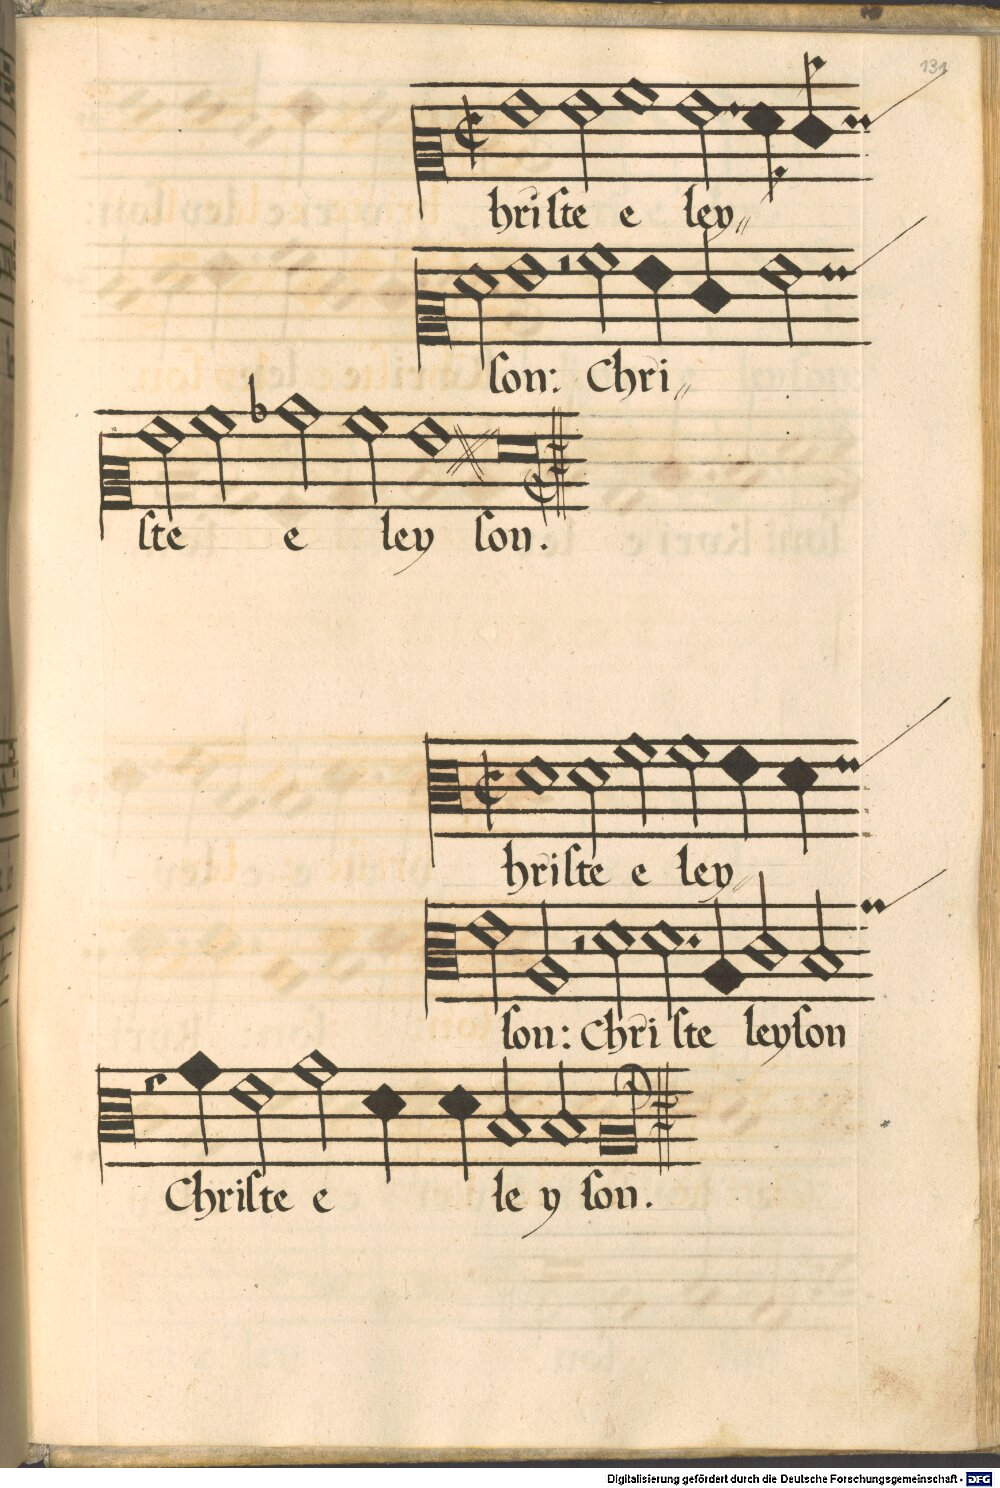 131
hriste e ley
son: Chri
ste e ley son.
hriste e ley
son: Christe leyson
Christe e le y son.
Digitalisierung gefördert durch die Deutsche Forschungsgemeinschaft - DFG